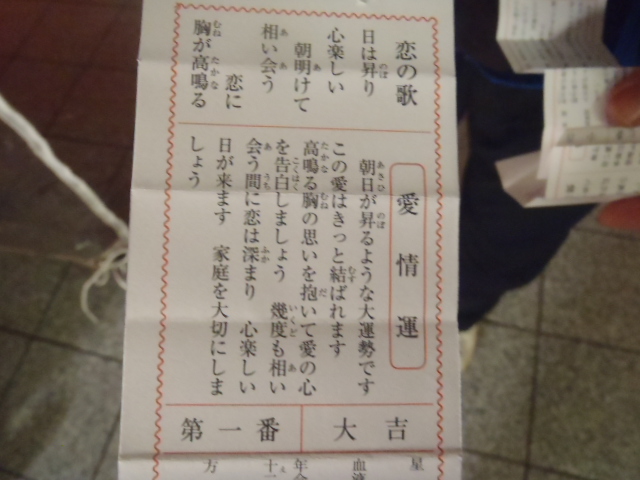 恋の歌
日は昇り
心楽しい
朝明けて
相い会う
恋に
胸が高鳴る
愛情運
朝日が昇るような大運勢です
この愛はきっと結ばれます
高鳴る胸の思いを抱いて愛の心
を告白しましょう 幾度も相い
会う間に恋は深まり 心楽しい
日が来ます 家庭を大切にしま
しょう
大吉
第一番
星
血液
年令
十二
方